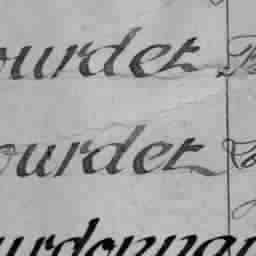 ourdet
ourdet
urdonna